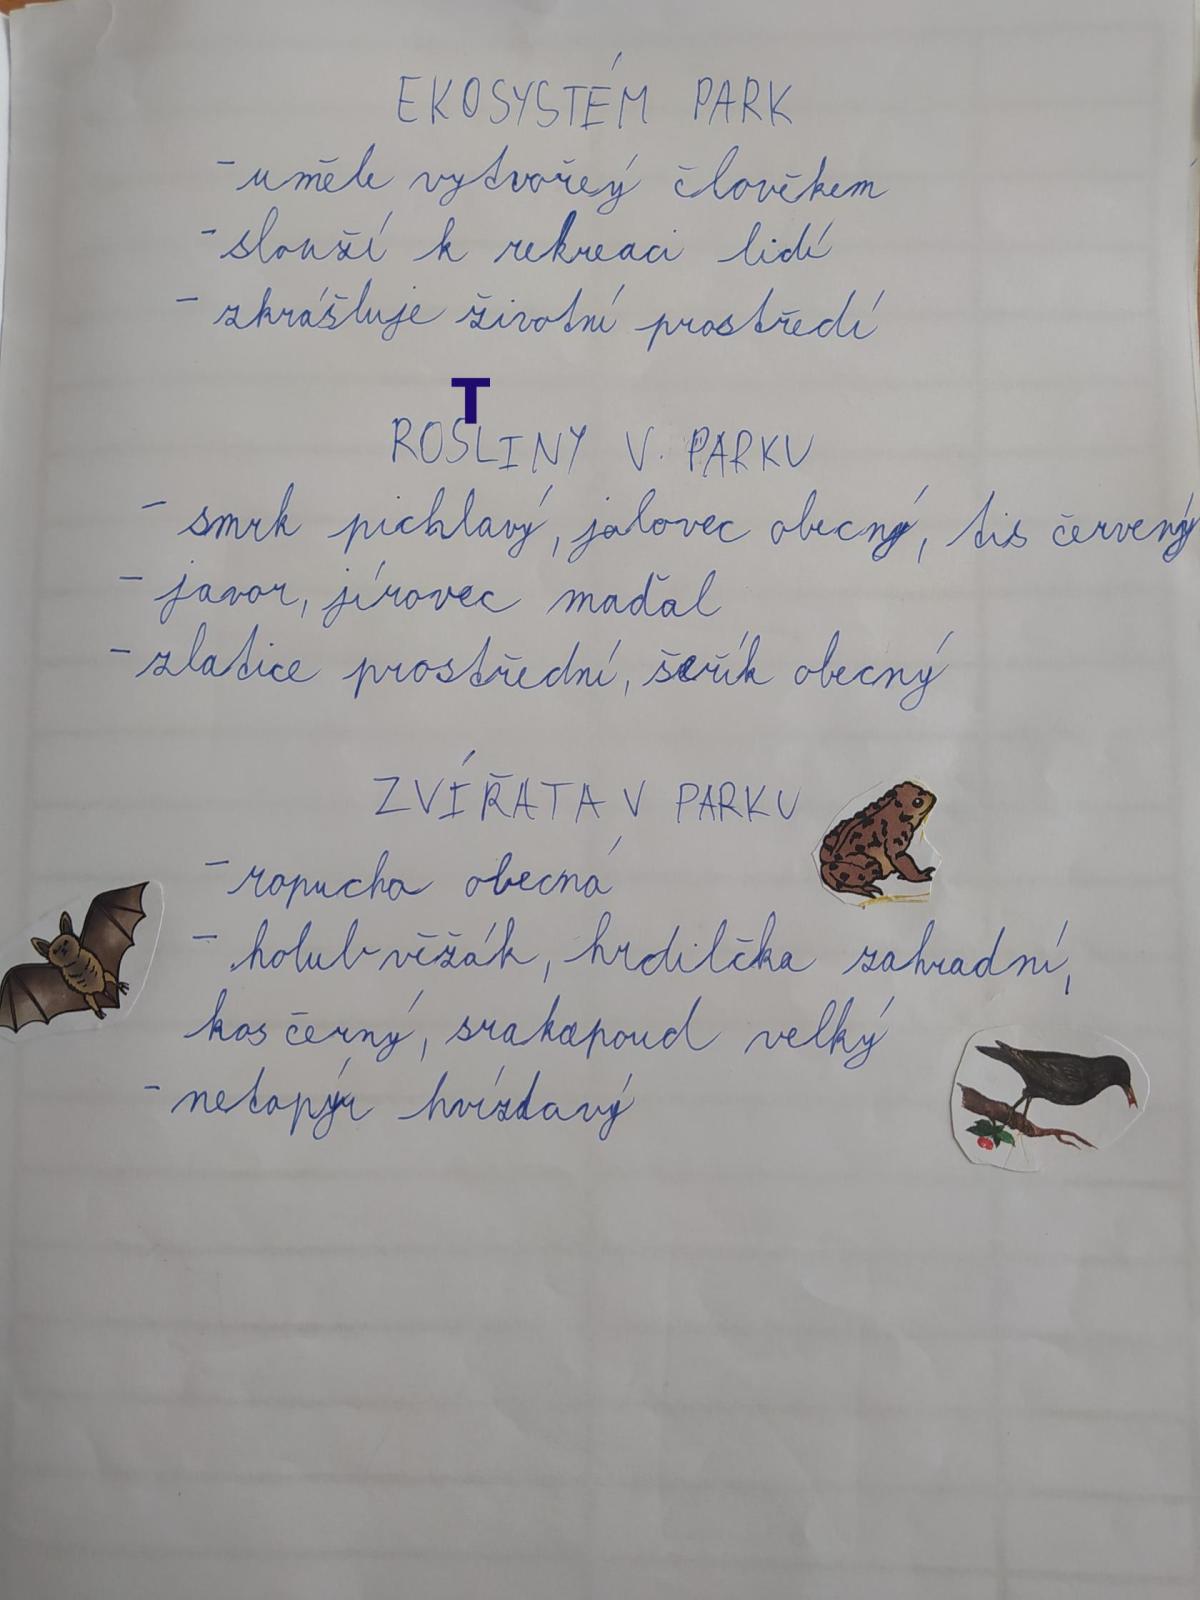 EKOSYSTÉM PARK
- uměle vytvořey člověkem
- slouží k rekreaci lidí
- zkrášluje životní prostředí
T
ROSLINY V PARKU
- smrk pichlavý, jalovec obecný, tis červený
- javor, jírovec maďal
- zlatice prostřední, šeřík obecný
ZVÍŘATA V PARKU
- ropucha obecná
- holub věžák, hrdilčka zahradní,
kos černý, srakapoud velký
- netopýr hvízdavý